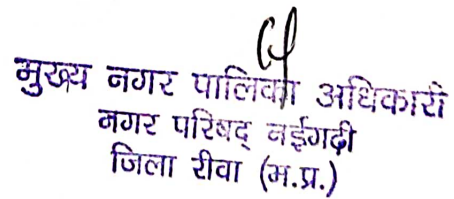 मुख्य नगर पालिका अधिकारी
नगर परिषद् नईगढ़ी
जिला रीवा (म.प्र.)